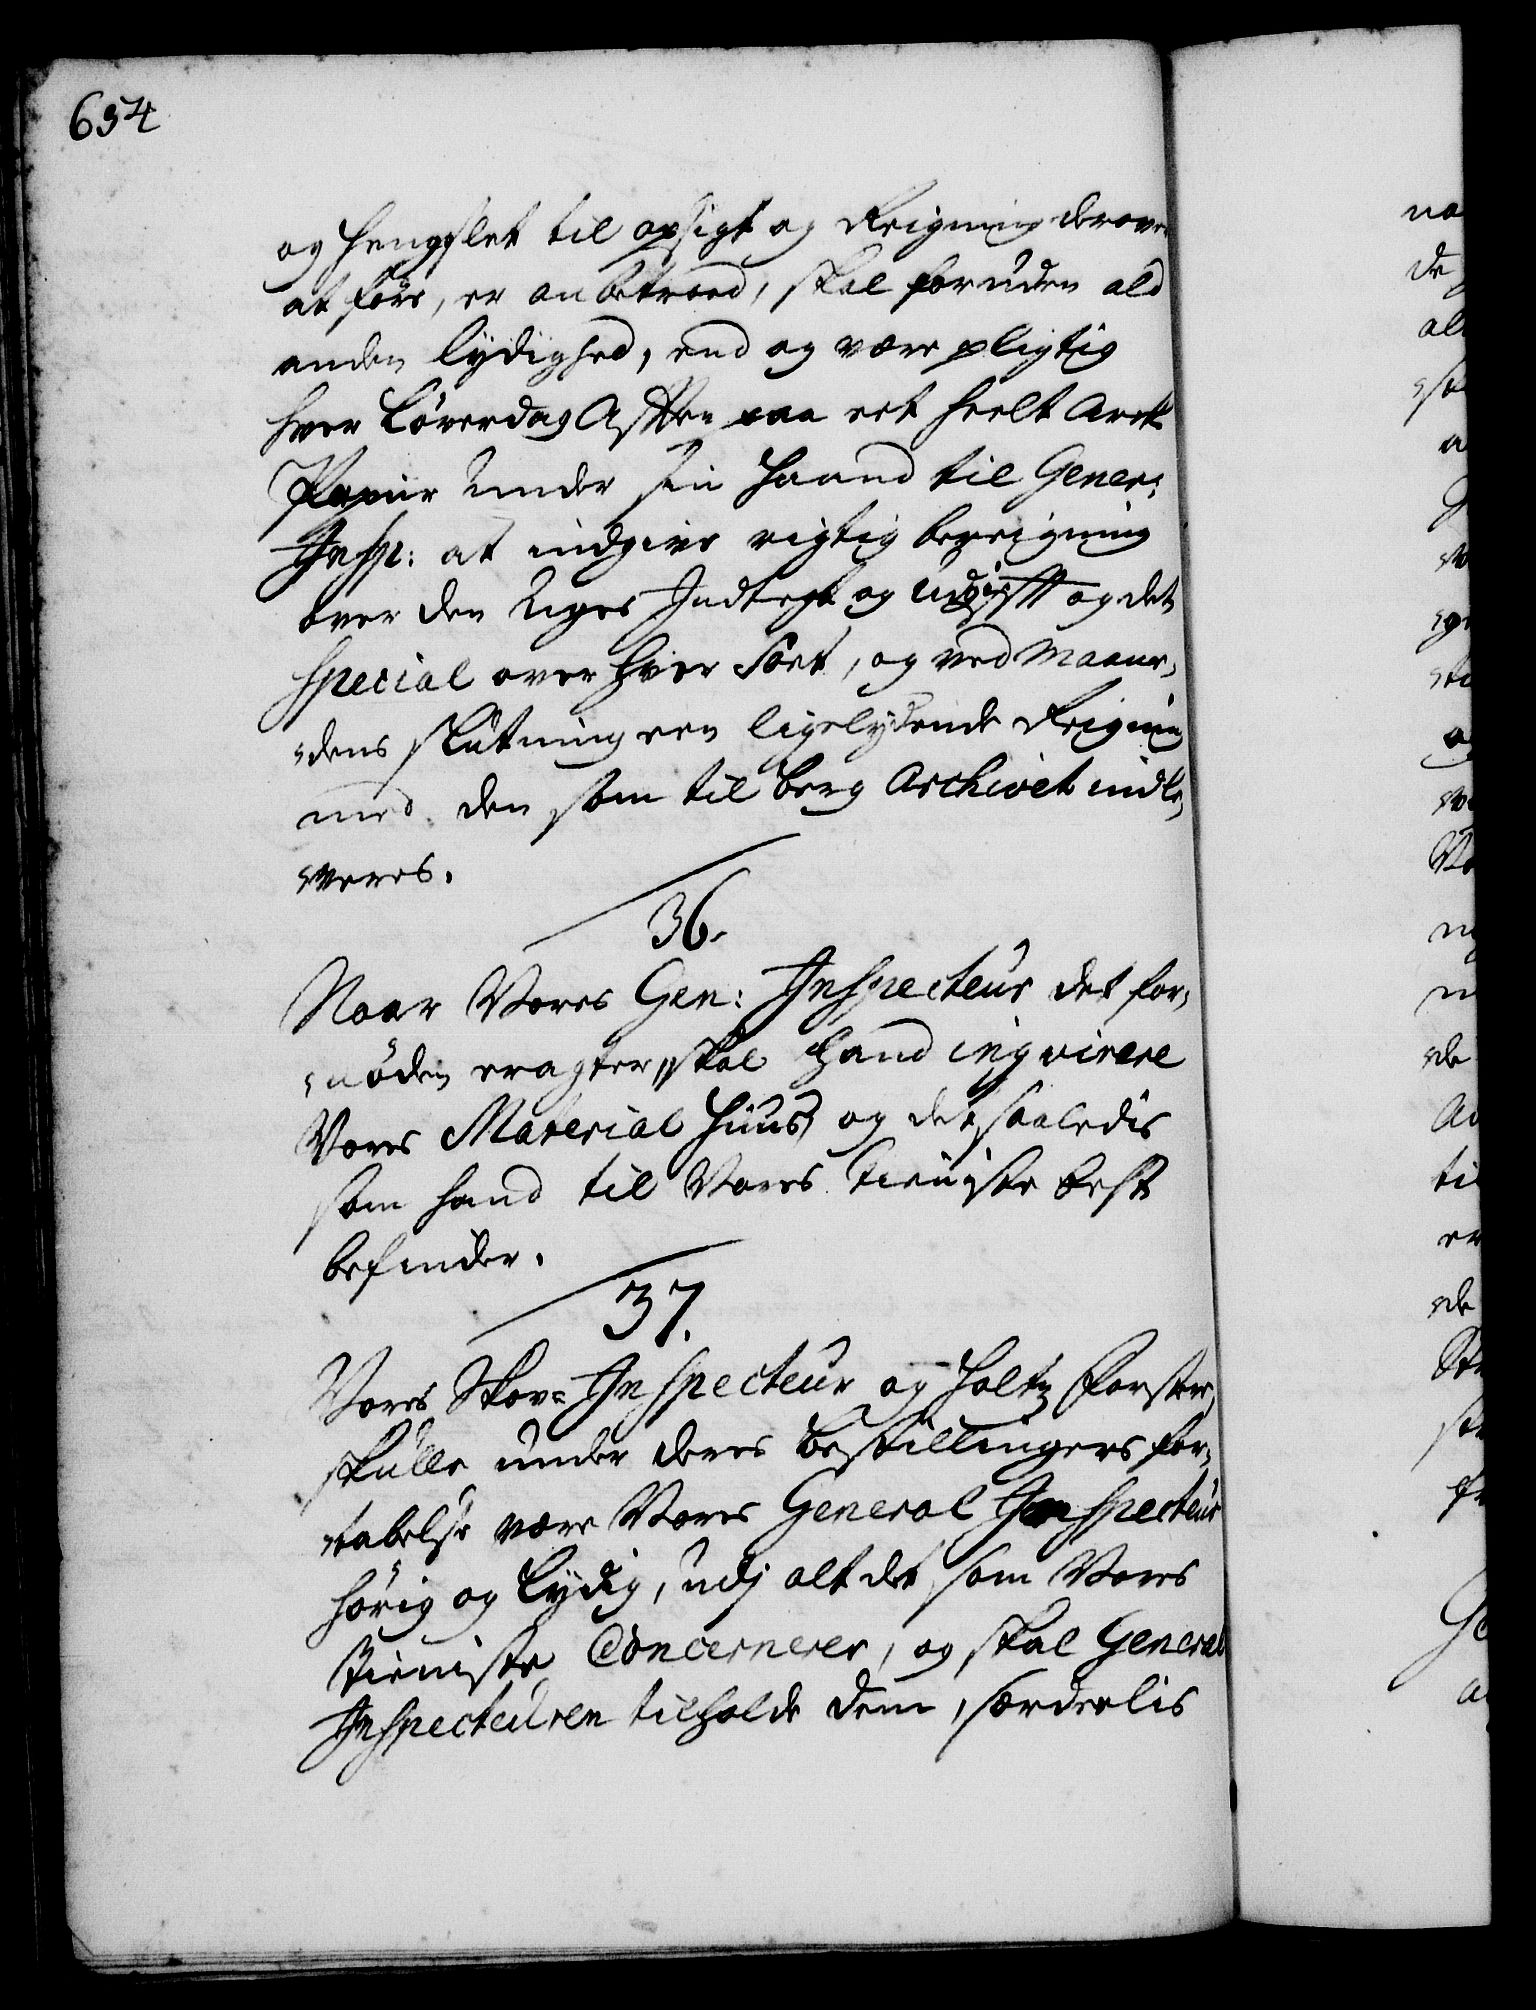 634
og  til opsigt og Reigning derover
at före, er anbetroed, skal foruden ald
anden lydighed, end og være pligtig
hver Löverdag Afften paa eet heelt Arck
Papiir under sin Haand til Gener:
Insp: at indgive rigtig bereigning
over den Uges Indtegt og Udgifft og det
special over hver Sort, og ved Maane,
„dens slutning een ligelydende Reigning
med den som til berg Archivet indle,
„veres.
36.
Naar Vores Gen: Inspecteur det for,
„nöden eragter, skal hand inqvirere
Vores Material Huus, og det saaledis
som hand til Vores tieniste best
befinder.
37.
Vores Skov= Inspecteur og Holtz Forster,
skulle under deres bestillingers for,
„tabelse være Vores General Inspecteur
hörig og lydig, udj alt det som Vores
tieniste Concernerer, og skal General
Inspecteuren tilholde dem, særdeelis